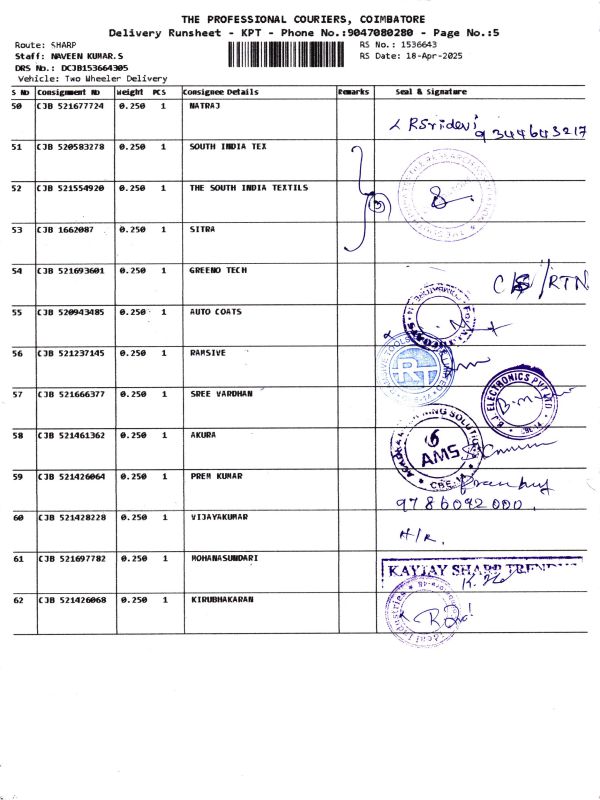 THE PROFESSIONAL COURIERS, COIMBATORE
Delivery Runsheet - KPT - Phone No.:9047080280 - Page No.:5
Route: SHARP RS No.: 1536643
Staff: NAVEEN KUMAR.S RS Date: 18-Apr-2025
DRS No.: DCJB153664305
Vehicle: Two Wheeler Delivery
S No Consignment No Weight PCS Consignee Details Remarks Seal & Signature
50 CJB 521677724 0.250 1 NATRAJ
RSridevi
9344643217
51 CJB 520583278 0.250 1 SOUTH INDIA TEX
52 CJB 521554920 0.250 1 THE SOUTH INDIA TEXTILS
3
53 CJB 1662087 0.250 1 SITRA
54 CJB 521693601 0.250 1 GREENO TECH
/RTN
55 CJB 520943485 0.250 1 AUTO COATS
56 CJB 521237145 0.250 1 RAMSIVE
RT
57 CJB 521666377 0.250 1 SREE VARDHAN
B.J. ELECTRONICS PVT LTD
58 CJB 521461362 0.250 1 AKURA
AMS
CBE
59 CJB 521426064 0.250 1 PREM KUMAR
9786092000
60 CJB 521428228 0.250 1 VIJAYAKUMAR
H/R.
61 CJB 521697782 0.250 1 MOHANASUNDARI
KAYJAY SHARP TRENDYS
62 CJB 521426068 0.250 1 KIRUBHAKARAN
Industries